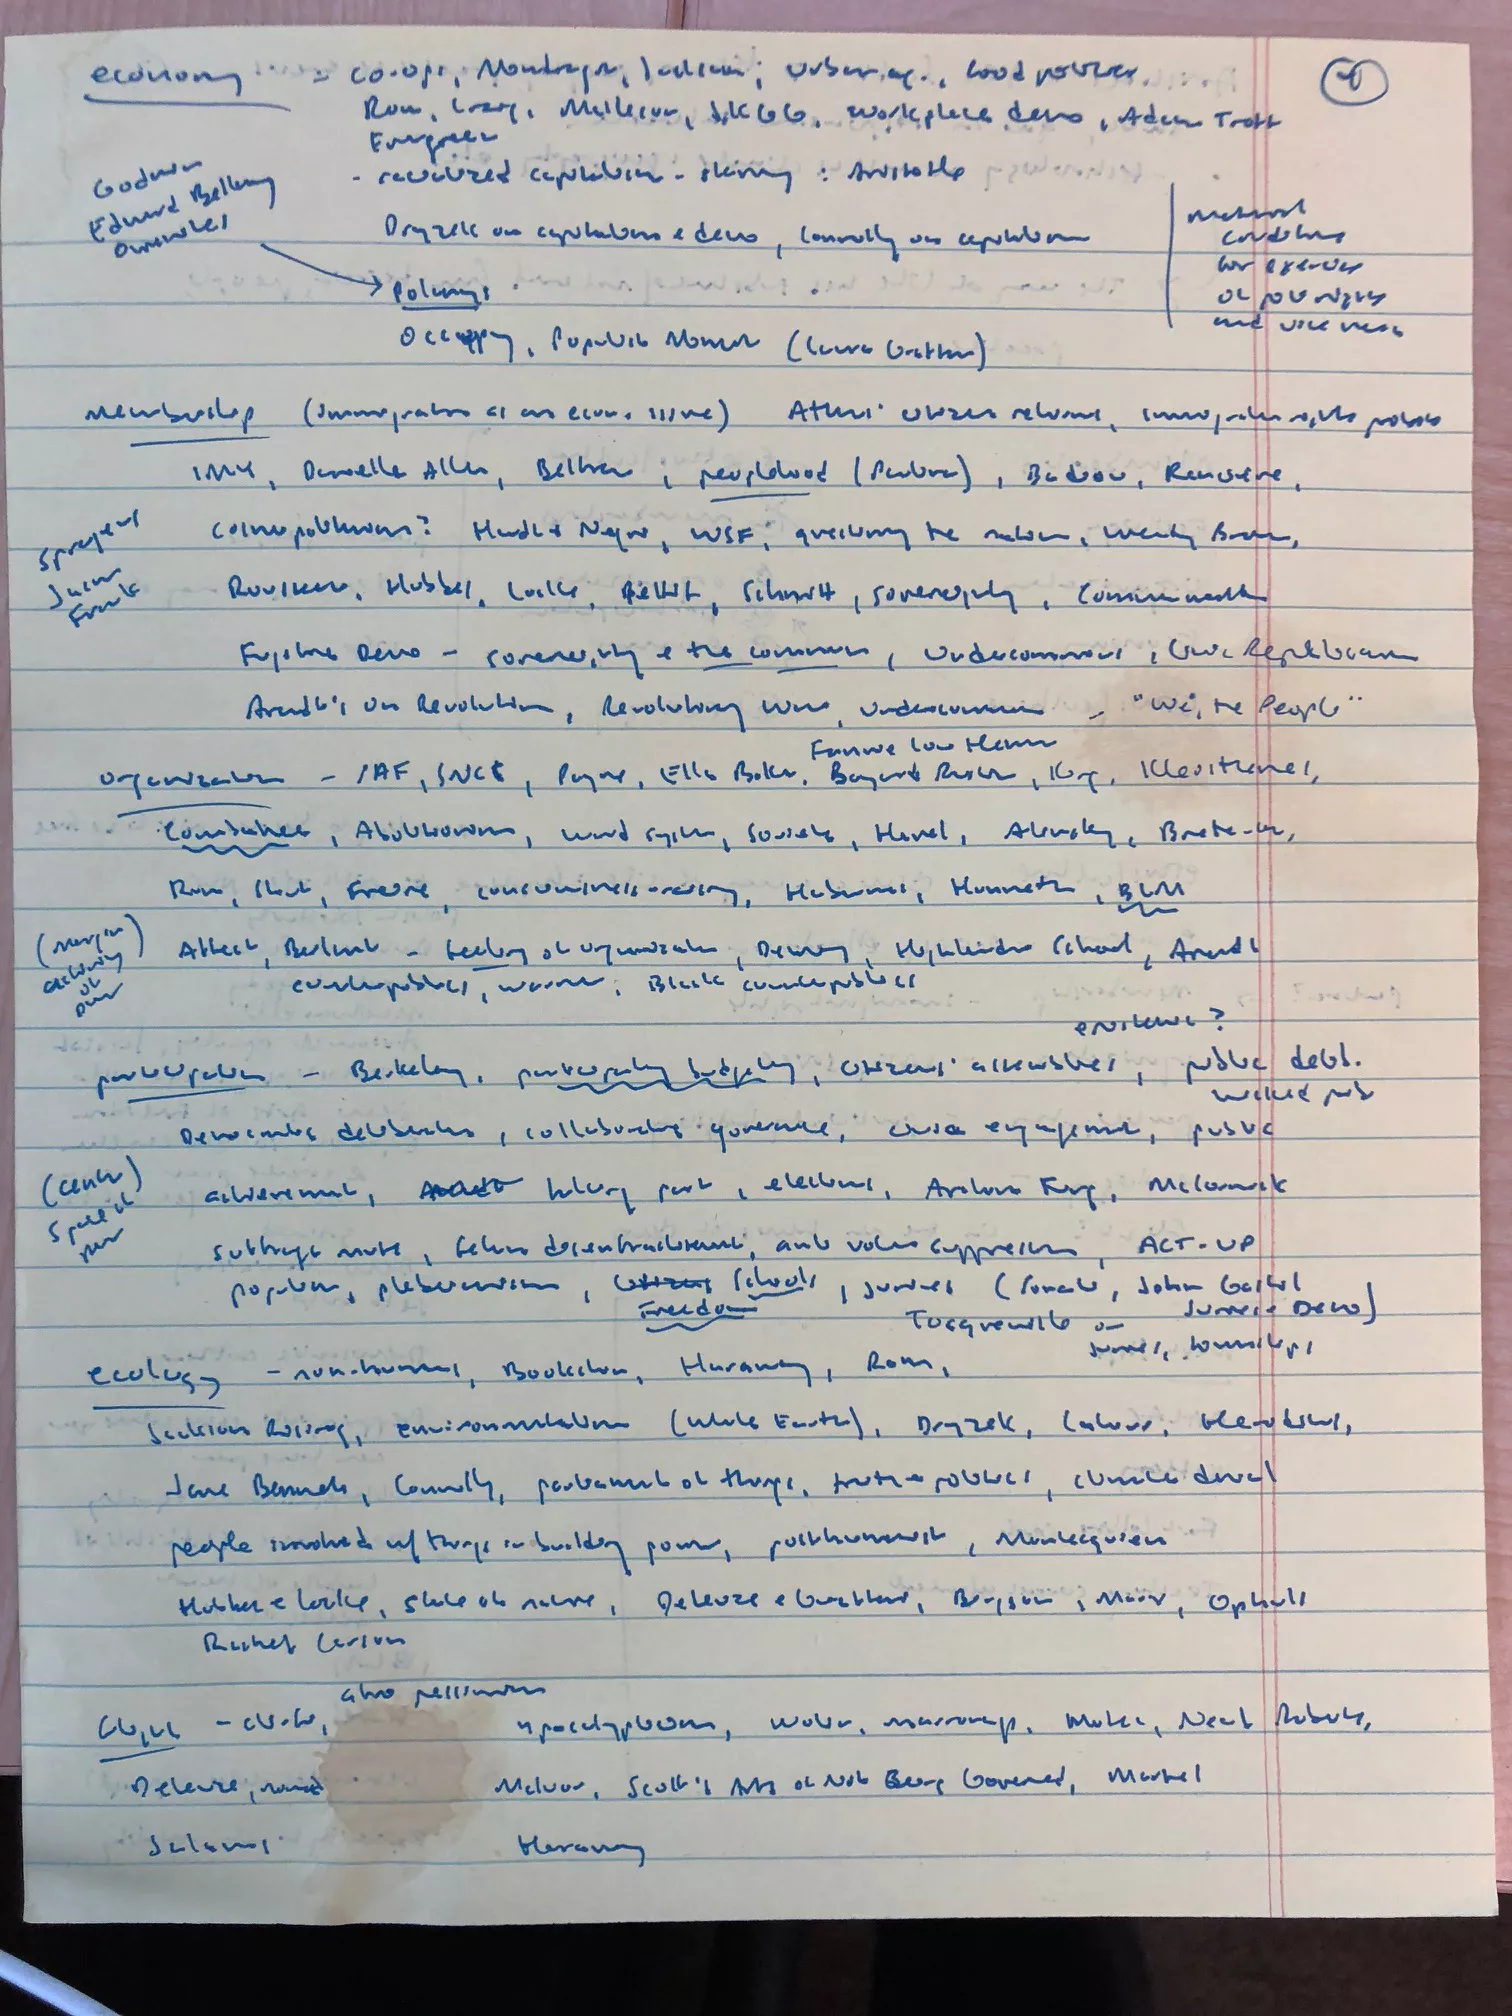 economy = co-ops, Mondragon, Jackson; urban ag., food politics
Rom, Craig, Malleson, workplace demo, Adam Trott
Evergreen
- racialized capitalism - slavery : Aristotle
Goodwin
Edward Bellamy
Dryzek on capitalism & demo, Connolly on capitalism
material
conditions
for exercise
of pol rights
and vice versa
Polanyi
Occupy, Populist Moment (Laura Grattan)
membership (immigration as an econ. issue) Athens' citizen reforms, immigration rights politics
IMY, Danielle Allen, Beltran, peoplehood (Paulina), Badiou, Ranciere,
cosmopolitanism? Hardt & Negri, WSF, questioning the nation, Wendy Brown,
Sprayers
Jason
Frank
Rousseau, Hobbes, Locke, Pettit, Schmitt, sovereignty, Commonwealth
Fugitive Demo - sovereignty & the commons, undercommons, Civic Republicanism
Arendt's On Revolution, Revolutionary War, undercommons - "We, the People"
Fannie Lou Hamer
organization - IAF, SNCC, Payne, Ella Baker, Bayard Rustin, King, Kleisthenes,
Combahee, Abolitionism, ward system, Soviets, Havel, Alinsky, Bretherton,
Rom, Stout, Freire, consciousness-raising, Habermas, Honneth, BLM
(margin)
Affect, Berlant - feeling of organization, Dewey, Highlander School, Arendt
counterpublics, Warner, Black counterpublics
epistemic?
participation - Berkeley, participatory budgeting, citizens' assemblies, public delib.
wicked prob
Democratic deliberation, collaborative governance, civic engagement, public
(center)
achievement, history part, elections, Archon Fung, McCormick
suffrage mvmt, felon disenfranchisement, anti voter suppression, ACT-UP
populism, plebeianism, Citizens Schools, juries (Sonali, John Gastil
Freedom
Jury & Demo)
Tocqueville on
juries, townships
ecology - non-humans, Bookchin, Haraway, Rom,
Jackson Rising, environmentalism (Whole Earth), Dryzek, Latour, Herodotus,
Jane Bennett, Connolly, parliament of things, truth & politics, climate denial
people involved w/ things in building power, posthumanist, Montesquieu
Hobbes & Locke, state of nature, Deleuze & Guattari, Bergson, Muir, Ophuls
Rachel Carson
afro pessimism
apocalypticism, Wolin, marronage, Neil Roberts,
Deleuze, nomad McIvor, Scott's Arts of Not Being Governed, Markell
Salamis Haraway